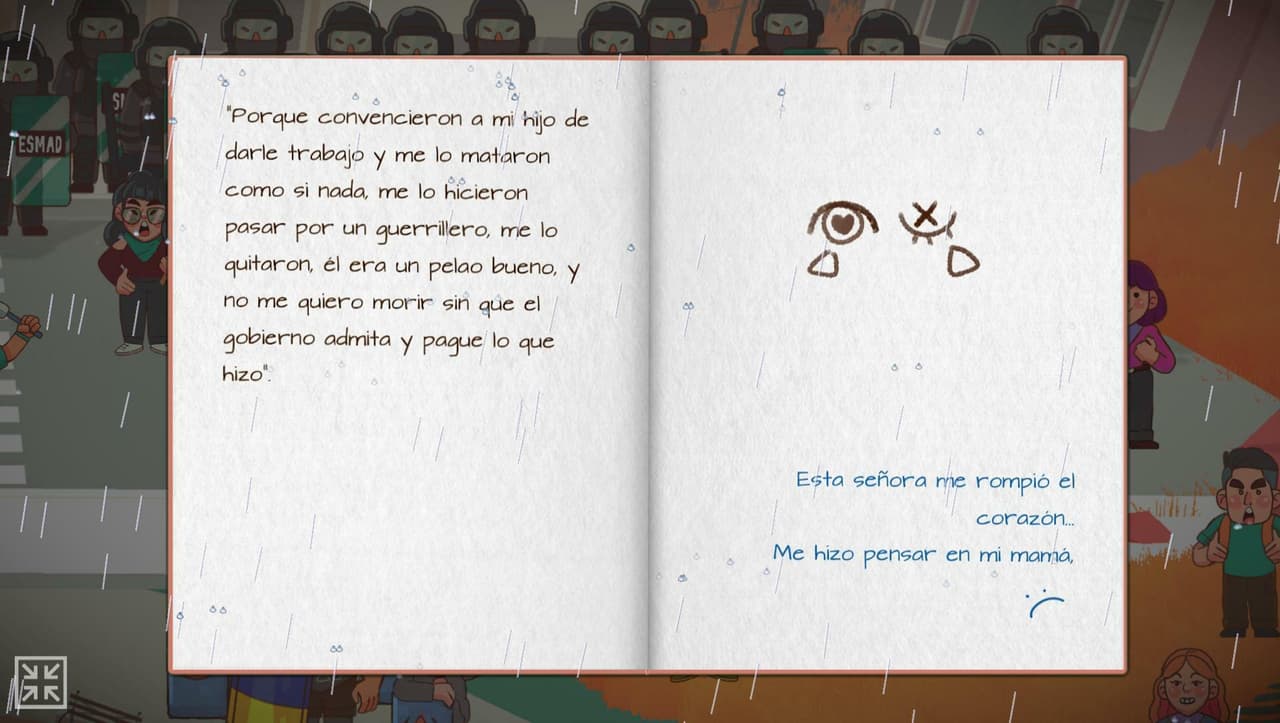 ESMAD
"Porque convencieron a mi hijo de
darle trabajo y me lo mataron
como si nada, me lo hicieron
pasar por un guerrillero, me lo
quitaron, él era un pelao bueno, y
no me quiero morir sin que el
gobierno admita y pague lo que
hizo".
Esta señora me rompió el
corazón...
Me hizo pensar en mi mamá,